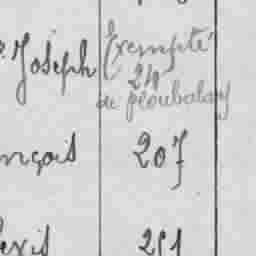 Joseph Exempté
24
de ploubalay
nçois 207
lexis 251